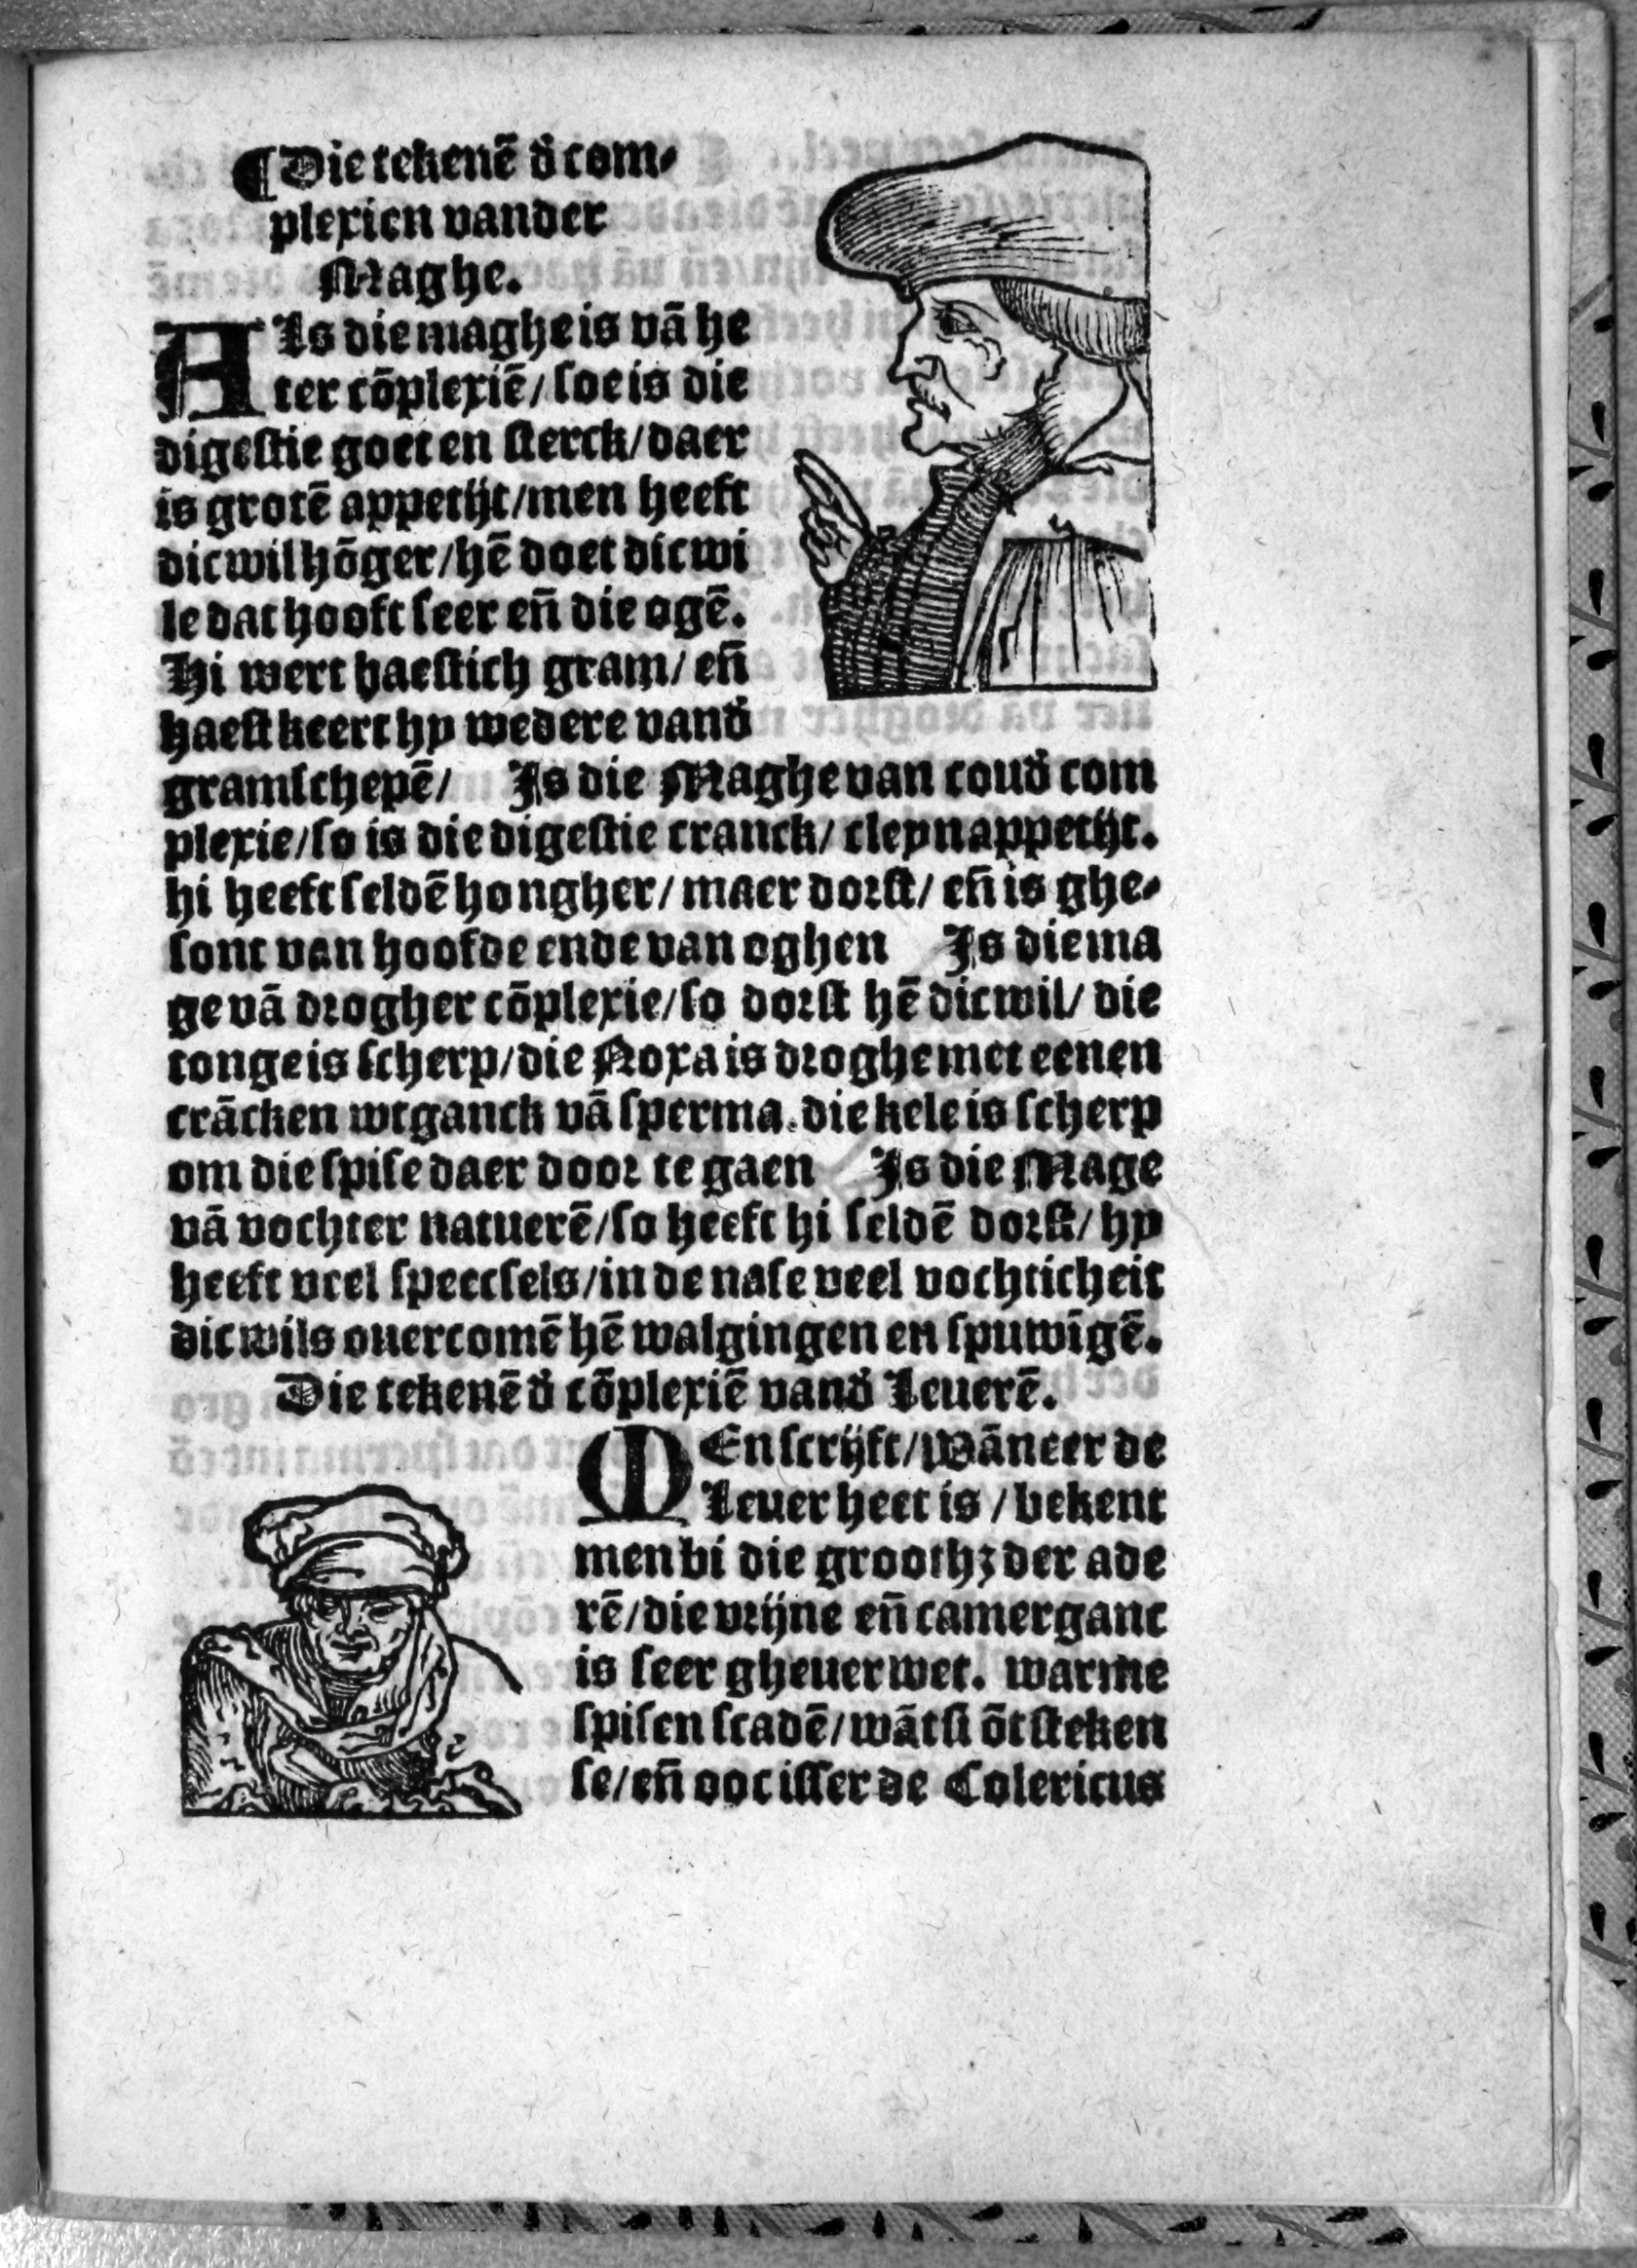 ¶ Die tekenē d̕ com⸗
plexien vander
Maghe.
ALs die maghe is vā he
ter cōplexiē/ soe is die
digestie goet en sterck/ daer
is grotē appetijt/ men heeft
dicwil hōger/ hē doet dicwi
le dat hooft seer en̄ die ogē.
Hi wert haestich gram/ en̄
haest keert hy wedere vand̕
gramschepē/ Is die Maghe van coud̕ com
plexie/ so is die digestie cranck/ cleyn appetijt.
hi heeft seldē hongher/ maer dorst/ en̄ is ghe⸗
sont van hoofde ende van oghen Is die ma
ge vā drogher cōplexie/ so dorst hē dicwil/ die
tonge is scherp/ die Noxa is droghe met eenen
crācken wtganck vā sperma. die kele is scherp
om die spise daer door te gaen Is die Mage
vā vochter natuerē/ so heeft hi seldē dorst/ hy
heeft veel speecsels/ in de nase veel vochticheit
dicwils ouercomē hē walgingen en spuwīgē.
Die tekenē d̕ cōplexiē vand̕ Leuerē.
MEn scrijft/ Wāneer de
Leuer heet is / bekent
men bi die grooth₃ der ade
rē/ die vrijne en̄ camerganc
is seer gheuerwet. warme
spisen scadē/ wāt si ōtsteken
se/ en̄ ooc isser de Colericus